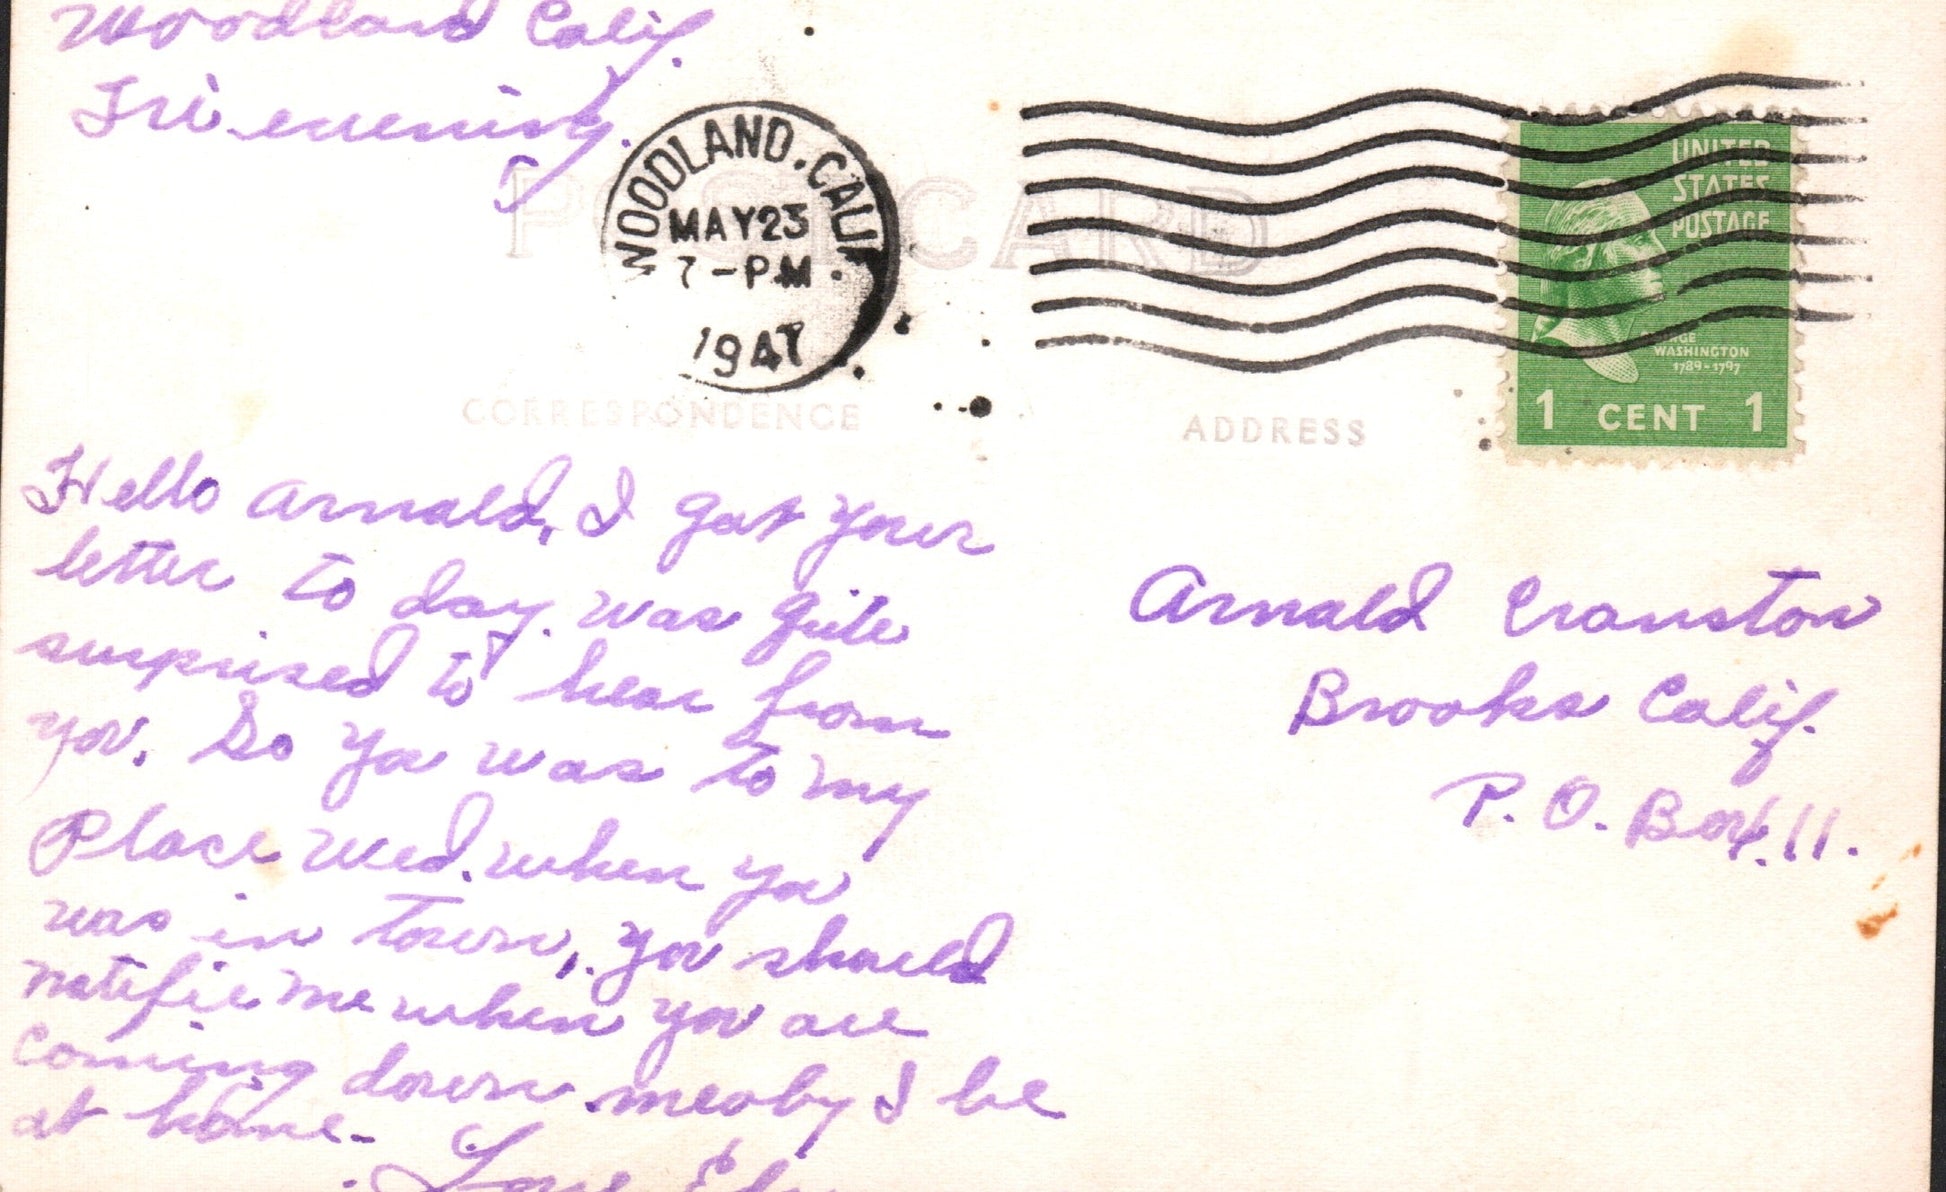 Woodland Calif.
Fri evening.
POST CARD
WOODLAND, CALIF.
MAY 23
7-PM
1947
UNITED
STATES
POSTAGE
WASHINGTON
1789-1797
1 CENT 1
CORRESPONDENCE
ADDRESS
Hello Arnald, I got your
letter to day. was quite
surprised to hear from
you. So you was to my
Place Wed. when you
was in town, you should
notifie me when you are
coming down meaby I be
at home.
Love
Arnald Cranston
Brooks Calif.
P. O. Box. 11.